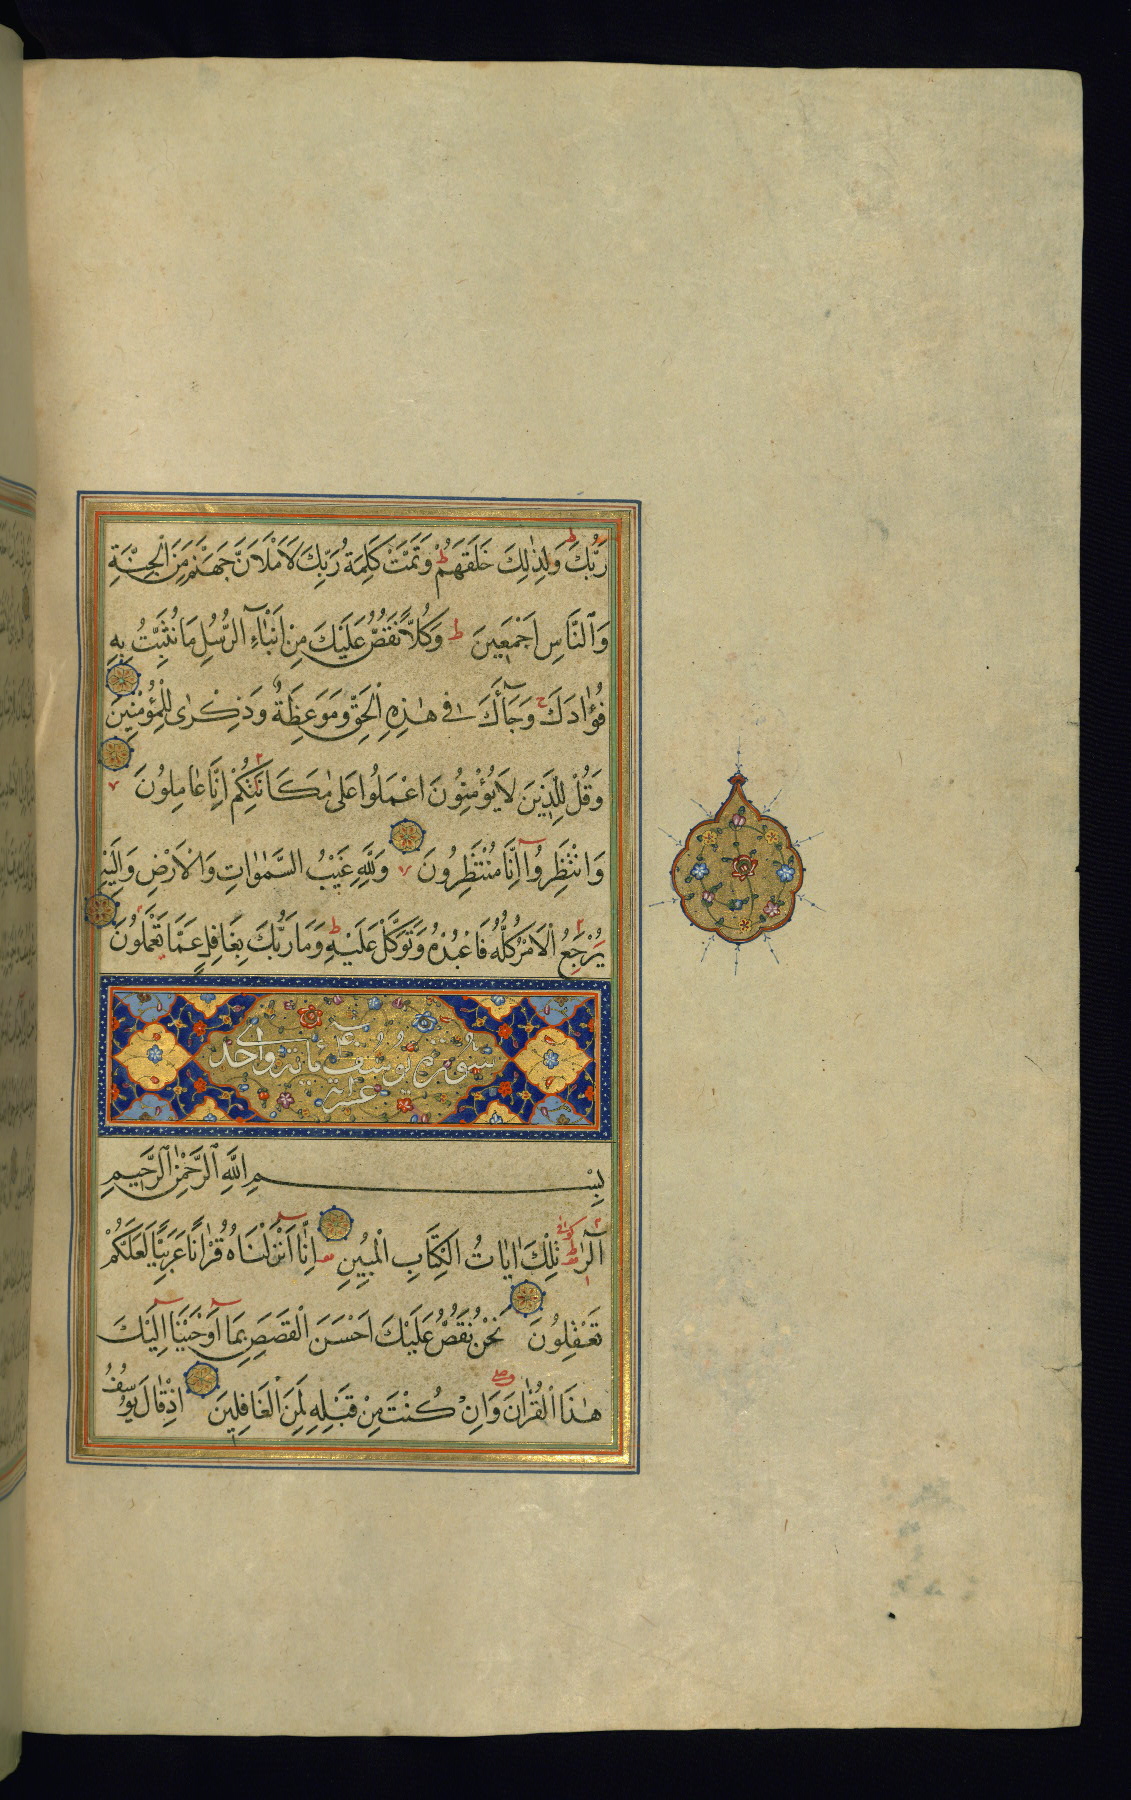 رَبُّكَ وَلِذٰلِكَ خَلَقَهُمْ وَتَمَّتْ كَلِمَةُ رَبِّكَ لَاَمْلَاَنَّ جَهَنَّمَ مِنَ الْجِنَّةِ
وَالنَّاسِ اَجْمَعِينَ وَكُلًّا نَقُصُّ عَلَيْكَ مِنْ اَنْبَاۤءِ الرُّسُلِ مَا نُثَبِّتُ بِهِ
فُؤَادَكَ وَجَاۤءَكَ فِى هٰذِهِ الْحَقُّ وَمَوْعِظَةٌ وَذِكْرٰى لِلْمُؤْمِنِينَ
وَقُلْ لِلَّذِينَ لَا يُؤْمِنُونَ اعْمَلُوا عَلٰى مَكَانَتِكُمْ اِنَّا عَامِلُونَ
وَانْتَظِرُوا اِنَّا مُنْتَظِرُونَ وَلِلّٰهِ غَيْبُ السَّمٰوَاتِ وَالْاَرْضِ وَاِلَيْهِ
يُرْجَعُ الْاَمْرُ كُلُّهُ فَاعْبُدْهُ وَتَوَكَّلْ عَلَيْهِ وَمَا رَبُّكَ بِغَافِلٍ عَمَّا تَعْمَلُونَ
سورة يوسف مائة واحد
عشر اية
بِسْمِ اللّٰهِ الرَّحْمٰنِ الرَّحِيمِ
الٓرٰ تِلْكَ اٰيَاتُ الْكِتَابِ الْمُبِينِ اِنَّا اَنْزَلْنَاهُ قُرْاٰنًا عَرَبِيًّا لَعَلَّكُمْ
تَعْقِلُونَ نَحْنُ نَقُصُّ عَلَيْكَ اَحْسَنَ الْقَصَصِ بِمَا اَوْحَيْنَا اِلَيْكَ
هٰذَا الْقُرْاٰنَ وَاِنْ كُنْتَ مِنْ قَبْلِهِ لَمِنَ الْغَافِلِينَ اِذْ قَالَ يُوسُفُ